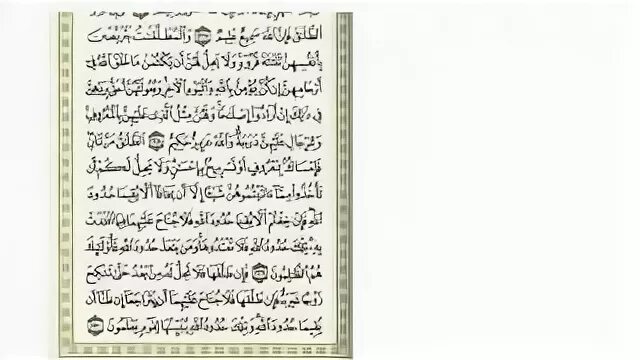 الطلق فإن الله سميع عليم والمطلقت يتربصن
بأنفسهن ثلثة قروء ولا يحل لهن أن يكتمن ما خلق الله في
أرحامهن إن كن يؤمن بالله واليوم الآخر وبعولتهن أحق بردهن
في ذلك إن أرادوا إصلحا ولهن مثل الذي عليهن بالمعروف
عليهن درجة والله عزيز حكيم الطلق مرتان
فإمساك بمعروف أو تسريح بإحسن ولا يحل لكم أن
تأخذوا مما ءاتيتموهن شيئا إلا أن يخافا ألا يقيما حدود
الله فإن خفتم ألا يقيما حدود الله فلا جناح عليهما فيما افتدت
به تلك حدود الله فلا تعتدوها ومن يتعد حدود الله فأولئك
هم الظلمون فإن طلقها فلا تحل له من بعد حتى تنكح
زوجا غيره فإن طلقها فلا جناح عليهما أن يتراجعا إن ظنا أن
يقيما حدود الله وتلك حدود الله يبينها لقوم يعلمون